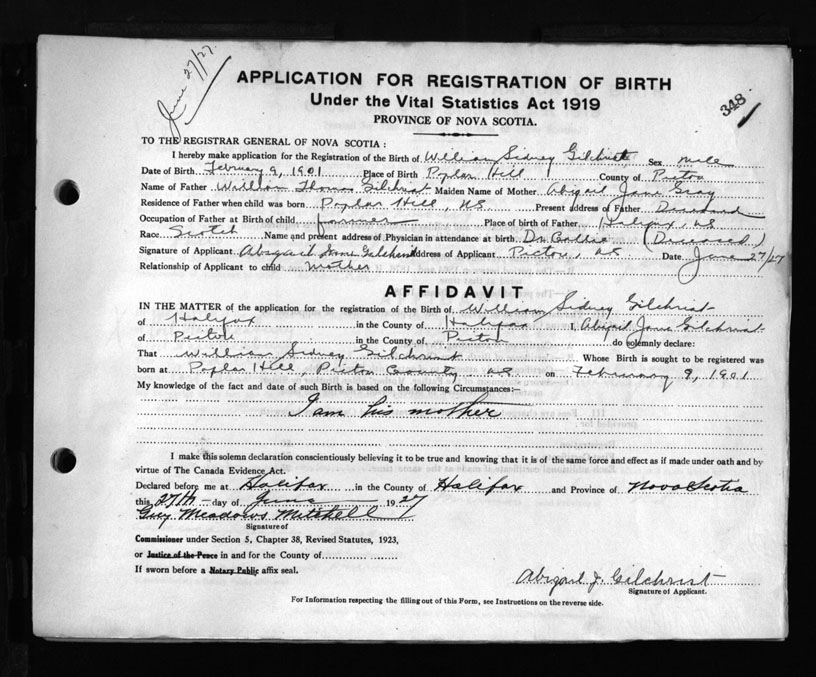 June 27/27.
APPLICATION FOR REGISTRATION OF BIRTH
Under the Vital Statistics Act 1919
348
PROVINCE OF NOVA SCOTIA.
TO THE REGISTRAR GENERAL OF NOVA SCOTIA:
I hereby make application for the Registration of the Birth of William Sidney Gilchrist Sex male
Date of Birth February 9, 1901 Place of Birth Poplar Hill County of Pictou
Name of Father William Thomas Gilchrist Maiden Name of Mother Abigail Jane Gray
Residence of Father when child was born Poplar Hill, NS Present address of Father Deceased
Occupation of Father at Birth of child farmer Place of birth of Father Halifax, NS
Race Scotch Name and present address of Physician in attendance at birth Dr. (Deceased)
Signature of Applicant Abigail Jane Gilchrist Address of Applicant Pictou, NS Date June 27/27
Relationship of Applicant to child mother
AFFIDAVIT
IN THE MATTER of the application for the registration of the Birth of William Sidney Gilchrist
of Halifax in the County of Halifax I, Abigail Jane Gilchrist
of Pictou in the County of Pictou do solemnly declare:
That William Sidney Gilchrist Whose Birth is sought to be registered was
born at Poplar Hill, Pictou County NS on February 9, 1901
My knowledge of the fact and date of such Birth is based on the following Circumstances:—
I am his mother
I make this solemn declaration conscientiously believing it to be true and knowing that it is of the same force and effect as if made under oath and by
virtue of The Canada Evidence Act.
Declared before me at Halifax in the County of Halifax and Province of Nova Scotia
this 27th day of June 1927
Guy Meadows Mitchell
Signature of
Commissioner under Section 5, Chapter 38, Revised Statutes, 1923,
or Justice of the Peace in and for the County of
If sworn before a Notary Public affix seal.
Abigail J. Gilchrist
Signature of Applicant.
For Information respecting the filling out of this Form, see Instructions on the reverse side.